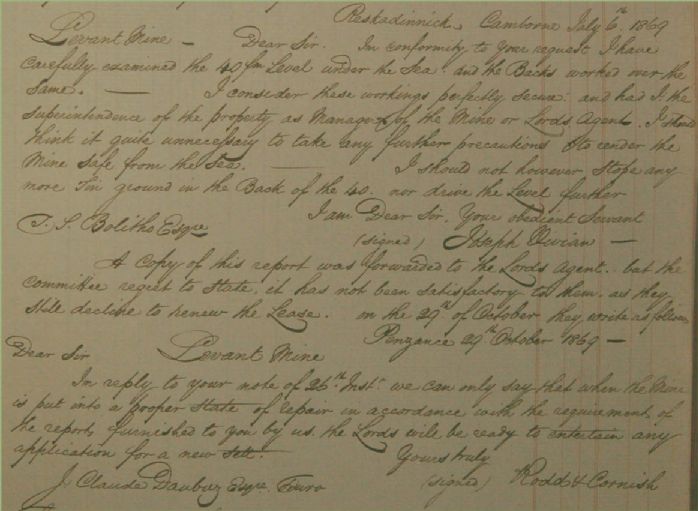 Reskadinnick. Camborne July 6th. 1869
Levant Mine — Dear Sir. In conformity to your request I have
carefully examined the 40 fm Level under the Sea. and the Backs worked over the
same. — I consider these workings perfectly secure: and had I the
superintendence of the property as Manager of the Mine or Lords Agent. I should
think it quite unnecessary to take any further precautions to render the
Mine safe from the Sea. — I should not however Stope any
more Tin ground in the Back of the 40. nor drive the Level further
I am Dear Sir. Your obedient Servant
T. S. Bolitho Esqre (signed) Joseph Vivian —
A Copy of this report was forwarded to the Lords Agent.. but the
Committee regret to State. it has not been satisfactory to them. as they
still decline to renew the Lease. on the 29th of October they write as follows
Penzance 29th October 1869 —
Dear Sir Levant Mine
In reply to your note of 26th Inst. we can only say that when the Mine
is put into a proper State of repair in accordance with the requirements of
the reports furnished to you by us. the Lords will be ready to entertain any
application for a new Sett. — Yours truly
J. Claude Daubuz Esqre. Truro (signed) Rodd & Cornish